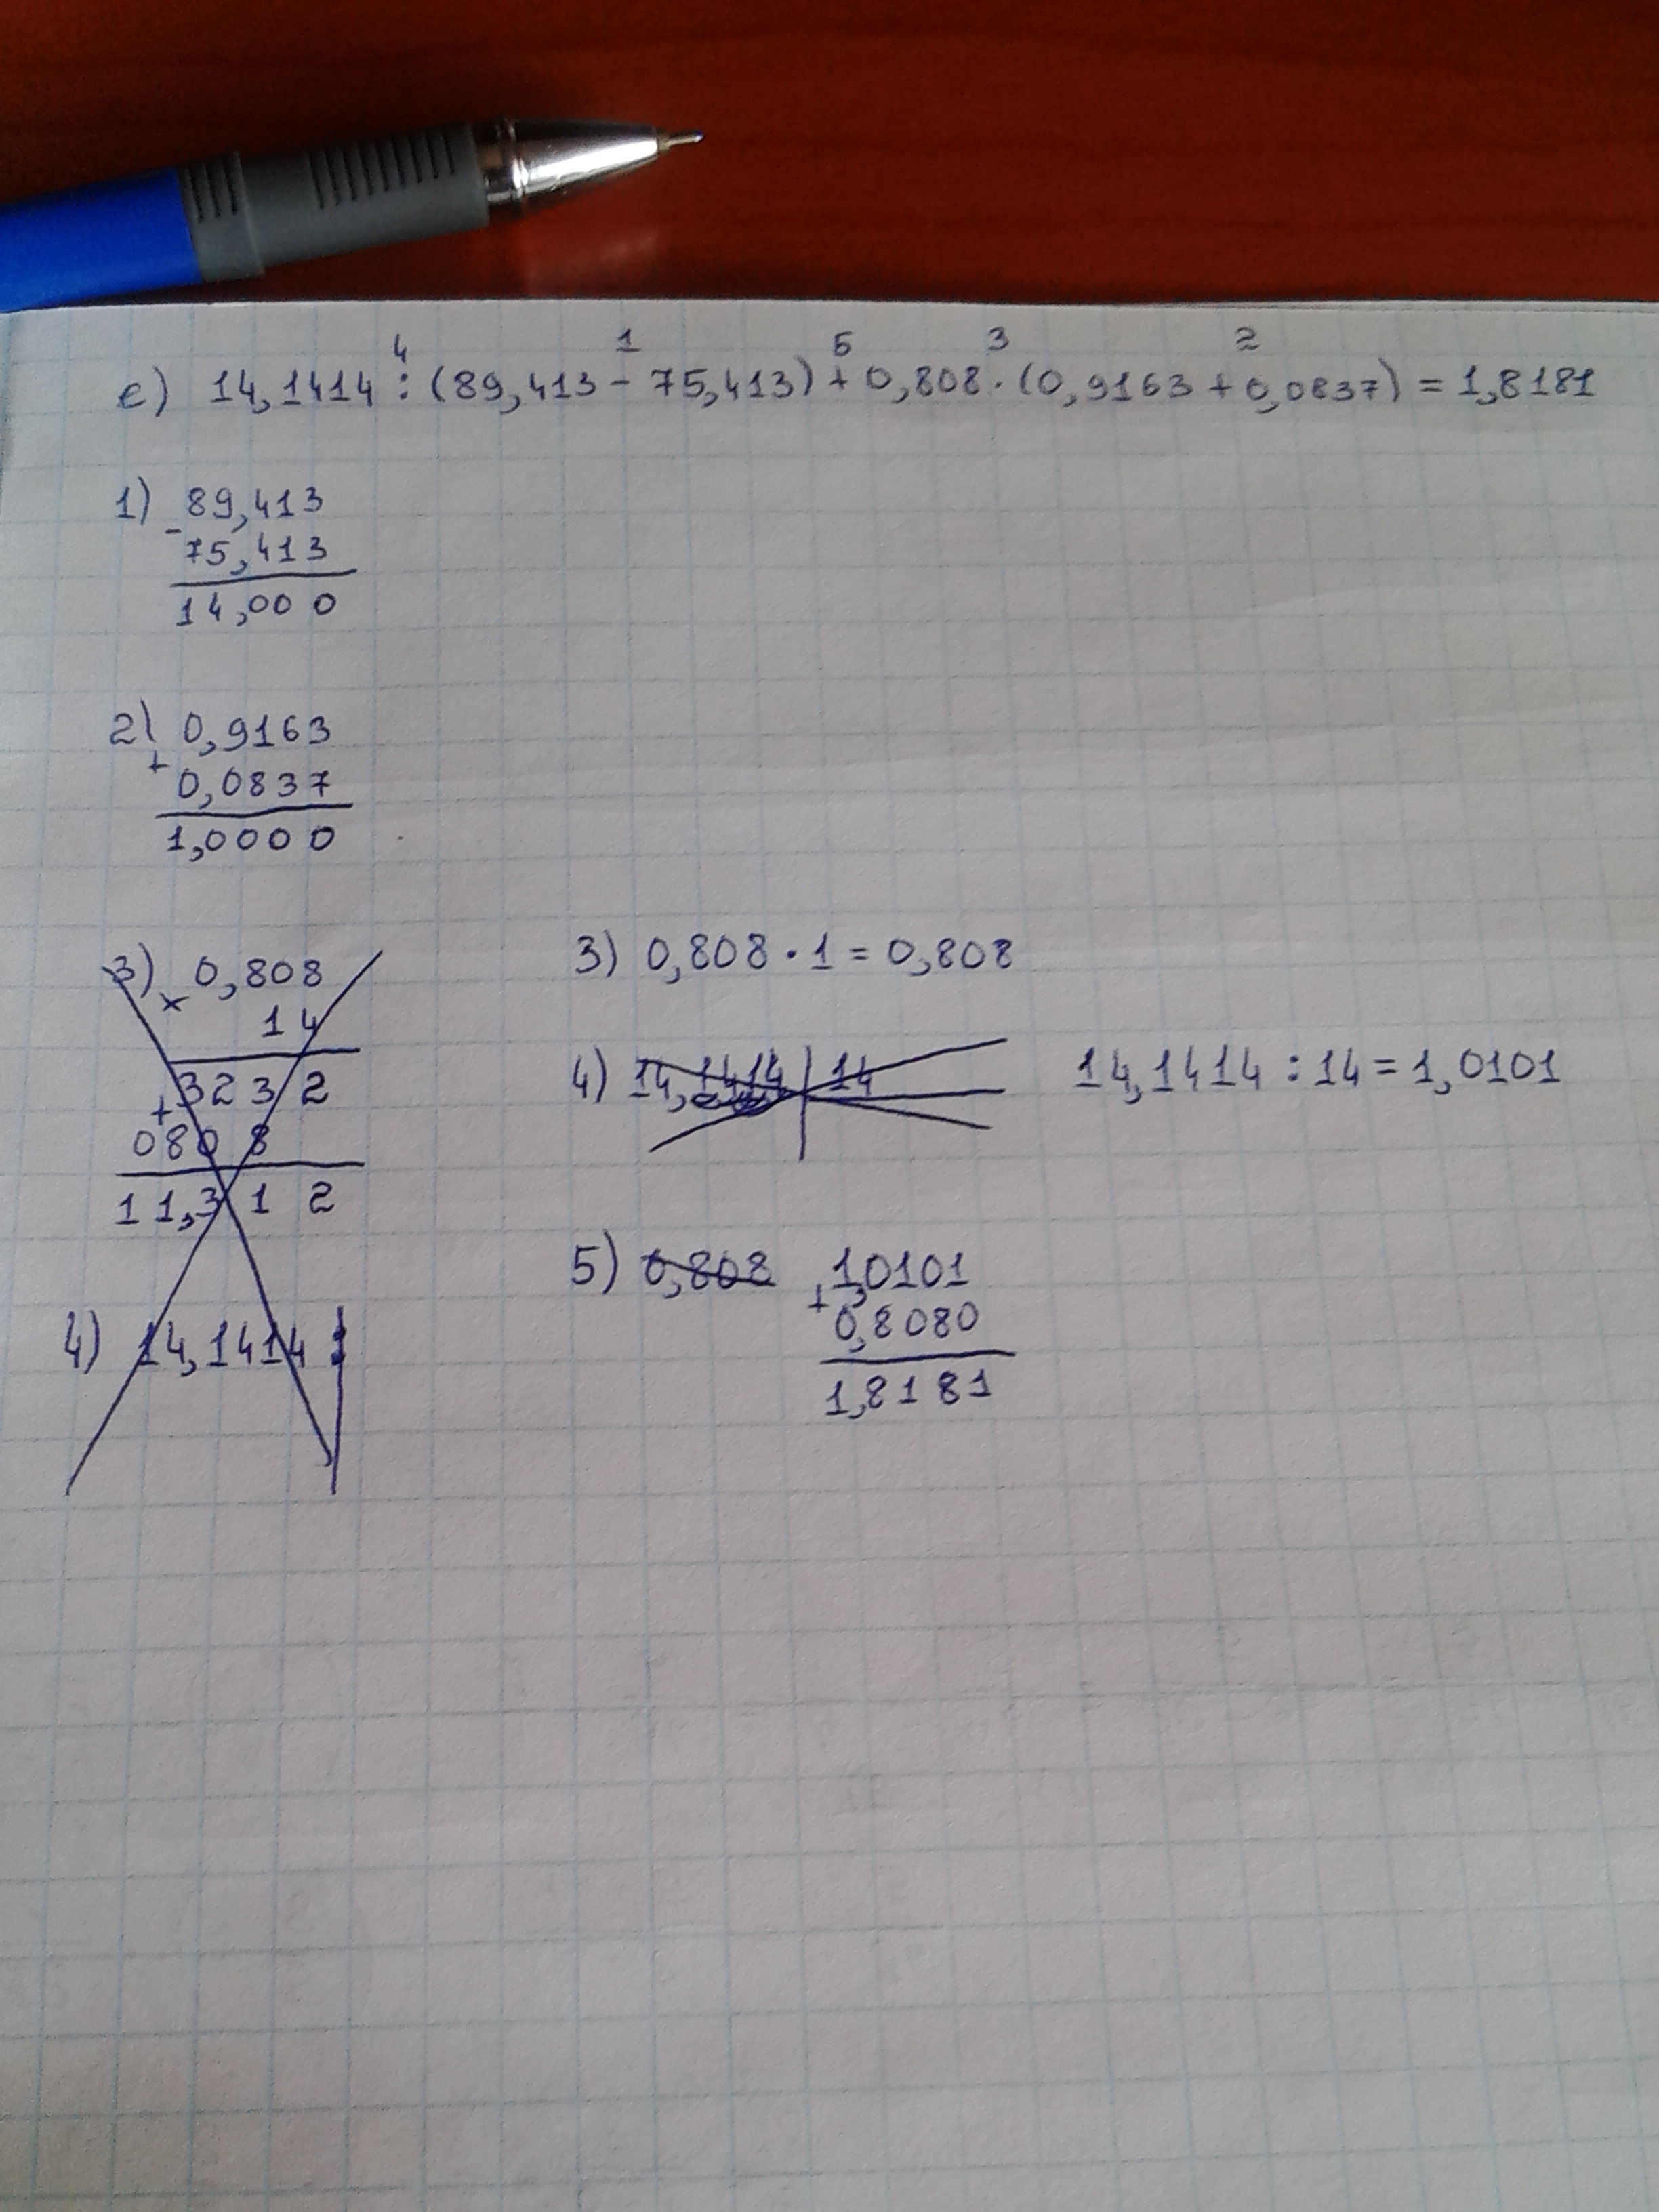 4 1 5 3 2
е) 14,1414 : (89,413 - 75,413) + 0,808 · (0,9163 + 0,0837) = 1,8181
1) 89,413
-
75,413
14,000
2) 0,9163
+
0,0837
1,0000
3) 0,808
×
14
3232
+
0808
11,312
4) 14,1414 :
3) 0,808 · 1 = 0,808
4) 14,1414 | 14 14,1414 : 14 = 1,0101
5) 0,808 1,0101
+
0,8080
1,8181